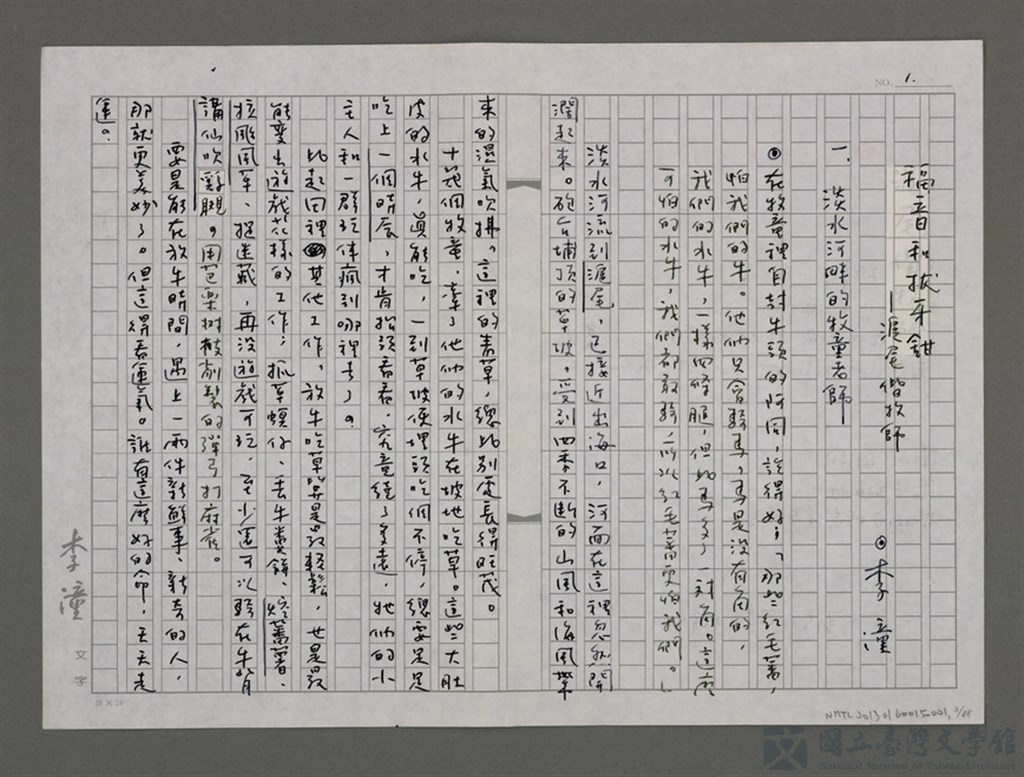 NO. 1.
福音和拔牙鉗
—滬尾偕牧師
◎李潼
一、淡水河畔的牧童老師
◎在牧童裡自封牛頭的阿同，說得好：「那些紅毛蕃，
怕我們的牛。他們只會騎馬，馬是沒有角的，
我們的水牛，一樣四條腿，但比馬多了一對角。這麼
可怕的水牛，我們都敢騎，所以紅毛蕃更怕我們。」
淡水河流到滬尾，已接近出海口，河面在這裡忽然開
濶起來。砲台埔頂的草坡，受到四季不斷的山風和海風帶
來的濕氣吹拂，這裡的青草，總比別處長得旺茂。
十幾個牧童，牽了他們的水牛在坡地吃草。這些大肚
皮的水牛，真能吃，一到草坡便埋頭吃個不停，總要足足
吃上一個時辰，才肯抬頭看看，究竟繞了多遠，牠們的小
主人和一群玩伴瘋到哪裡去了。
比起田裡其他工作，放牛吃草算是最輕鬆，也是最
能變出遊戲花樣的工作；抓草螟仔、丟牛糞餅、焢蕃薯、
找颱風草、捉迷藏，再沒遊戲可玩，至少還可以騎在牛背
講仙吹雞腿。用芭樂樹椏削製的彈弓打麻雀。
要是能在放牛時間，遇上一兩件新鮮事、新奇的人，
那就更美妙了。但這得看運氣。誰有這麼好的命，天天走
運。
李潼 文字
NMTL20130160015.001, 1/68
國立臺灣文學館
National Museum of Taiwan Literature